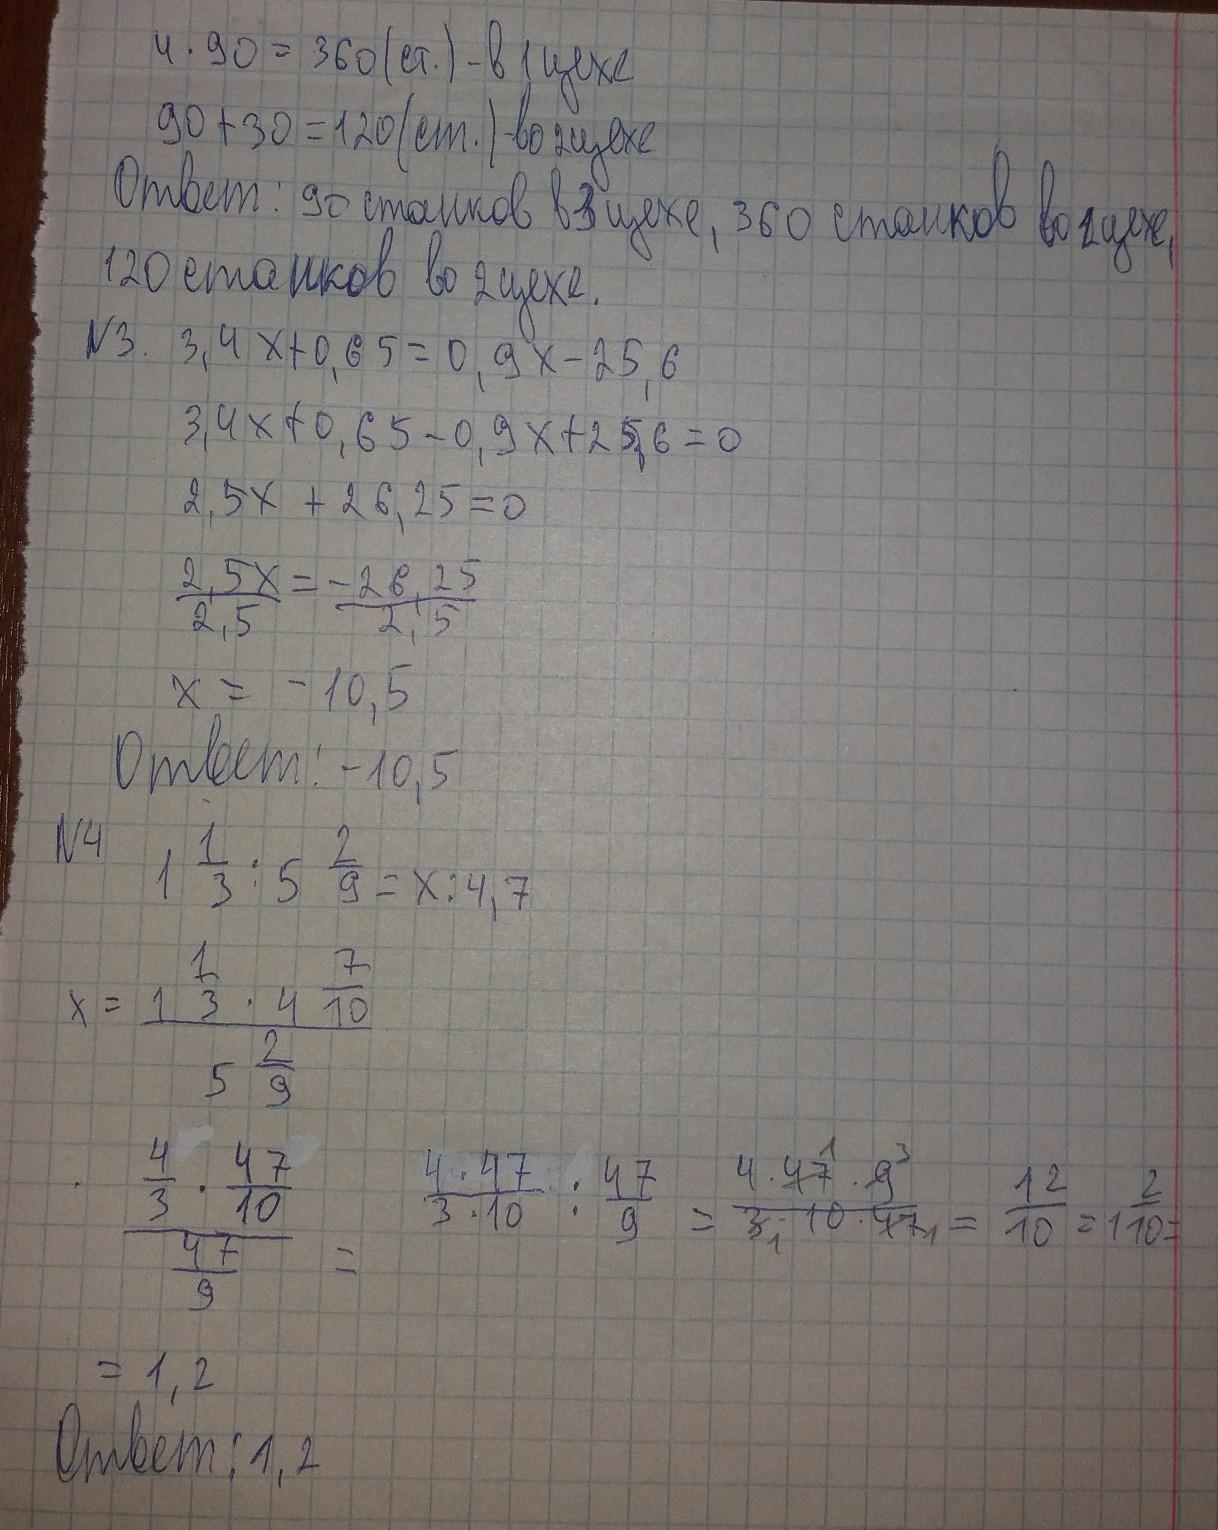 4 · 90 = 360 (ст.) - в 1 цехе
90 + 30 = 120 (ст.) - во 2 цехе
Ответ: 90 станков в 3 цехе, 360 станков во 1 цехе,
120 станков во 2 цехе.
№3. 3,4x + 0,65 = 0,9x - 25,6
3,4x + 0,65 - 0,9x + 25,6 = 0
2,5x + 26,25 = 0
2,5x/2,5 = -26,25/2,5
x = -10,5
Ответ: -10,5
№4 1 1/3 : 5 2/9 = x : 4,7
x = (1 1/3 · 4 7/10)/(5 2/9)
(4/3 · 47/10)/(47/9) = (4 · 47)/(3 · 10) : 47/9 = (4 · 47 1 · 9 3)/(3 1 · 10 · 47 1) = 12/10 = 1 2/10 =
= 1,2
Ответ: 1,2